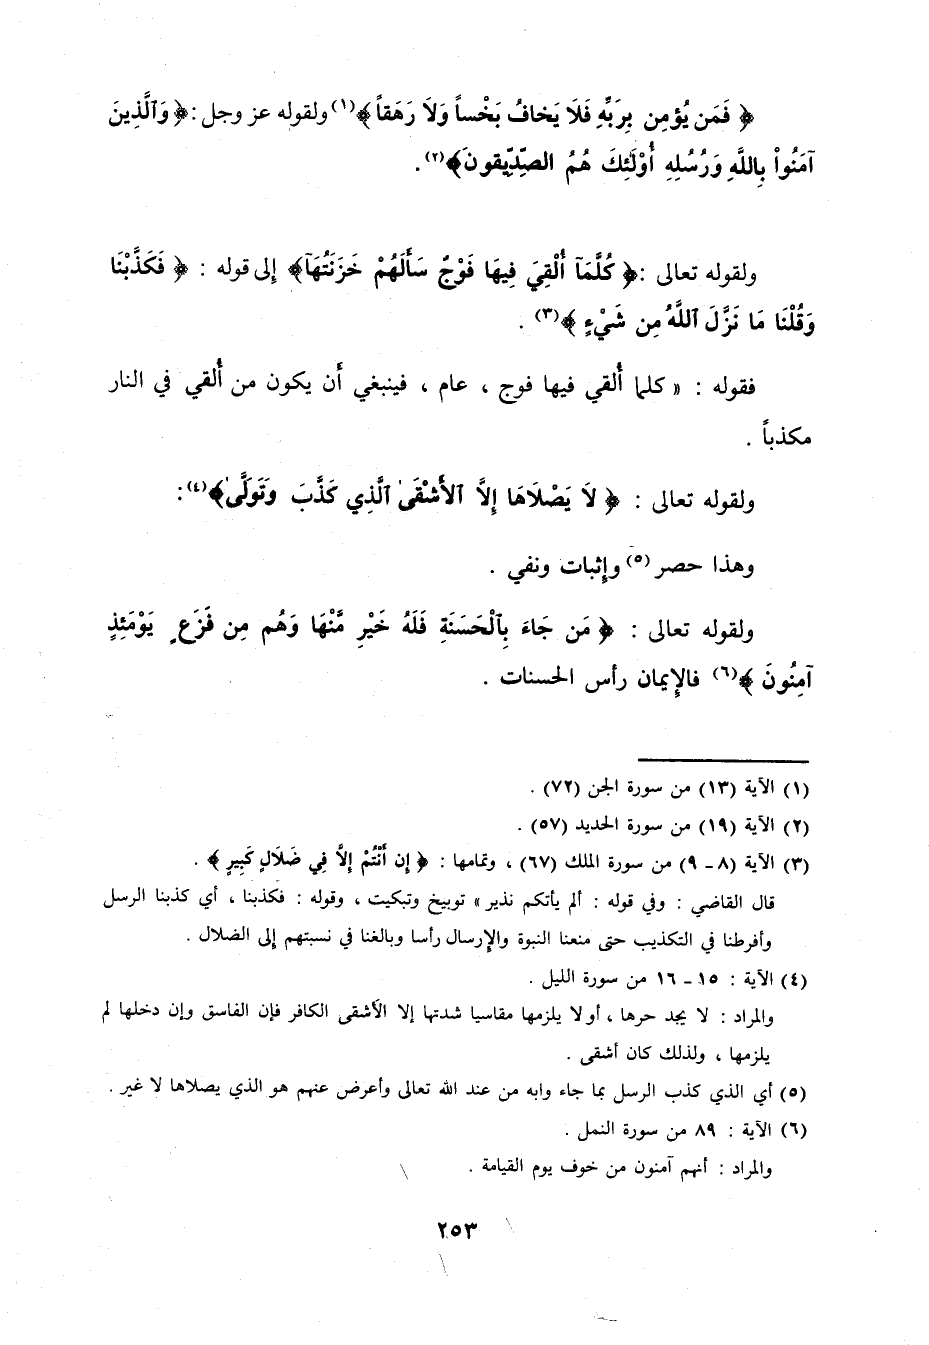 ﴿ فَمَن يُؤمِن بِرَبِّهِ فَلَا يَخافُ بَخْساً وَلَا رَهَقاً﴾(١) ولقوله عز وجل :﴿ وَٱلَّذِينَ
آمَنُواْ بِاللَّهِ وَرُسُلِهِ أُوْلَئِكَ هُمُ الصِّدِّيقونَ﴾(٢) .
ولقوله تعالى :﴿ كُلَّمَآ أُلْقِيَ فِيهَا فَوْجٌ سَأَلَهُمْ خَزَنَتُهَآ﴾ إلى قوله : ﴿ فَكَذَّبْنَا
وَقُلْنَا مَا نَزَّلَ ٱللَّهُ مِن شَيْءٍ ﴾(٣) .
فقوله : « كلما أُلقي فيها فوج ، عام ، فينبغي أَن يكون من أُلقي في النار
مكذباً .
ولقوله تعالى : ﴿ لَا يَصْلَاهَا إِلَّا ٱلأَشْقَىٰ ٱلَّذِي كَذَّبَ وَتَوَلَّىٰ﴾(٤) :
وهذا حصر (٥) وإثبات ونفي .
ولقوله تعالى : ﴿ مَن جَاءَ بِٱلْحَسَنَةِ فَلَهُ خَيْرِ مَّنْهَا وَهُم مِن فَزَعٍ يَوْمَئِذٍ
آمِنُونَ ﴾(٦) فالإيمان رأس الحسنات .
(١) الآية (١٣) من سورة الجن (٧٢) .
(٢) الآية (١٩) من سورة الحديد (٥٧) .
(٣) الآية (٨ ـ ٩) من سورة الملك (٦٧) ، وتمامها : ﴿ إِن أَنْتُمْ إِلاَّ فِي ضَلَالٍ كَبِيرٍ ﴾ .
قال القاضي : وفي قوله : ألم يأتكم نذير » توبيخ وتبكيت ، وقوله : فكذبنا ، أي كذبنا الرسل
وأفرطنا في التكذيب حتى منعنا النبوة والإرسال رأسا وبالغنا في نسبتهم إلى الضلال .
(٤) الآية : ١٥ ـ ١٦ من سورة الليل .
والمراد : لا يجد حرها ، أو لا يلزمها مقاسيا شدتها إلا الأشقى الكافر فإن الفاسق وإن دخلها لم
يلزمها ، ولذلك كان أشقى .
(٥) أي الذي كذب الرسل بما جاء وابه من عند الله تعالى وأعرض عنهم هو الذي يصلاها لا غير .
(٦) الآية : ٨٩ من سورة النمل .
والمراد : أنهم آمنون من خوف يوم القيامة .
٢٥٣